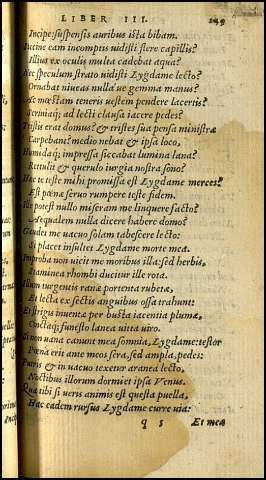 LIBER III. 249
Incipe: suspensis auribus ista bibam.
eam incomptis uidisti flere capillis?
Illius ex oculis multa cadebat aqua?
Nec speculum strato uidisti Lygdame lecto?
Ornabat niueas nulla ue gemma manus?
Ac mœstam teneris uestem pendere lacertis?
Scriniaq; ad lecti clausa iacere pedes?
Tristis erat domus? & tristes sua pensa ministræ
Carpebant? medio nebat & ipsa loco,
Humidaq; impressa siccabat lumina lana?
Rettulit & querulo iurgia nostra sono?
Hæc te teste mihi promissa est Lygdame merces?
Est pœna seruo rumpere teste fidem.
Ille potest nullo miseram me linquere facto?
Aequalem nulla dicere habere domo?
Gaudet me uacuo solam tabescere lecto:
Si placet insultet Lygdame morte mea.
Improba non uicit me moribus illa: sed herbis,
Staminea rhombi ducitur ille rota.
Illum turgentis ranæ portenta rubetæ,
Et lecta ex sectis anguibus ossa trahunt:
Et strigis inuenta per busta iacentia plumæ,
Cinctaq; funesto lanea uitta uiro.
Si non uana canunt mea somnia, Lygdame: testor
Pœna erit ante meos sera, sed ampla, pedes:
Putris & in uacuo texetur aranea lecto,
Noctibus illorum dormiet ipsa Venus.
Qua tibi si ueris animis est questa puella,
Hac eadem rursus Lygdame curre uia:
q 5 Et mea